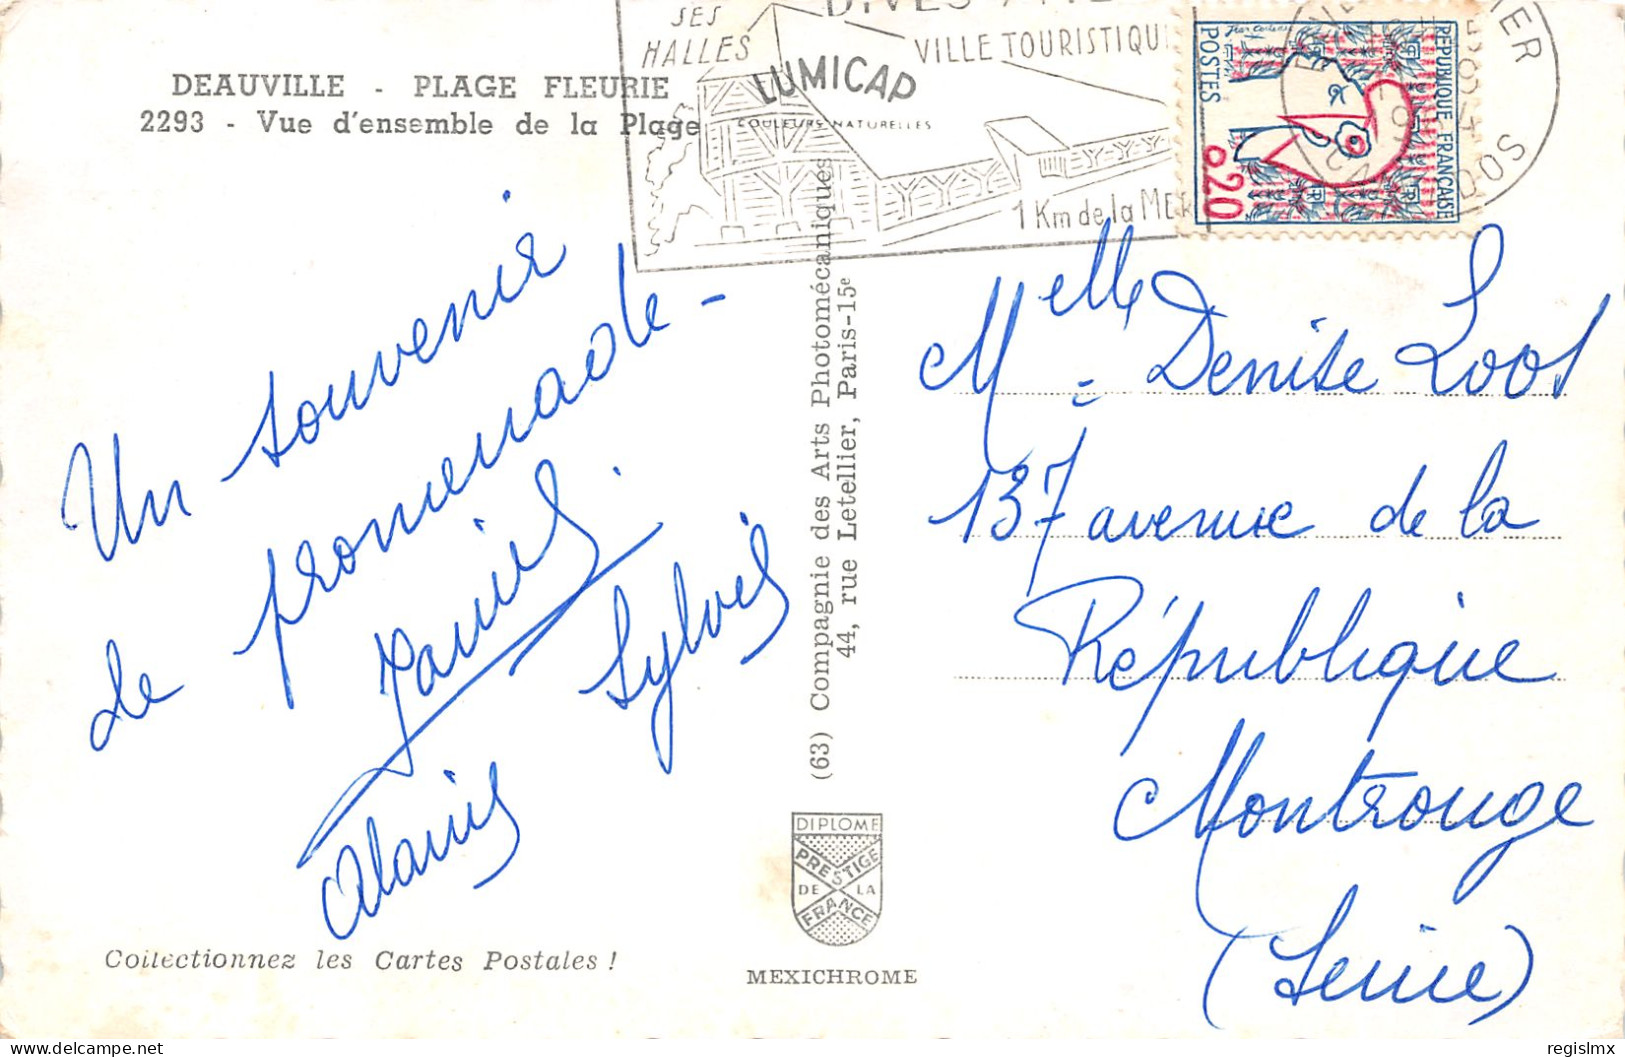 DEAUVILLE - PLAGE FLEURIE
2293 - Vue d'ensemble de la Plage
SES
HALLES
DIVES
VILLE TOURISTIQUE
LUMICAP
COULEURS NATURELLES
1 Km de la MER
POSTES
Jean Cocteau
REPUBLIQUE FRANÇAISE
0,20
Un souvenir
de promenade -
Alamis
Sylvis
(63) Compagnie des Arts Photomécaniques
44, rue Letellier, Paris-15e
Melle Denise Loos
137 avenue de la
République
Montrouge
(Seine)
DIPLOME
PRESTIGE
DE LA
FRANCE
Collectionnez les Cartes Postales !
MEXICHROME
regislmx
https://www.delcampe.net